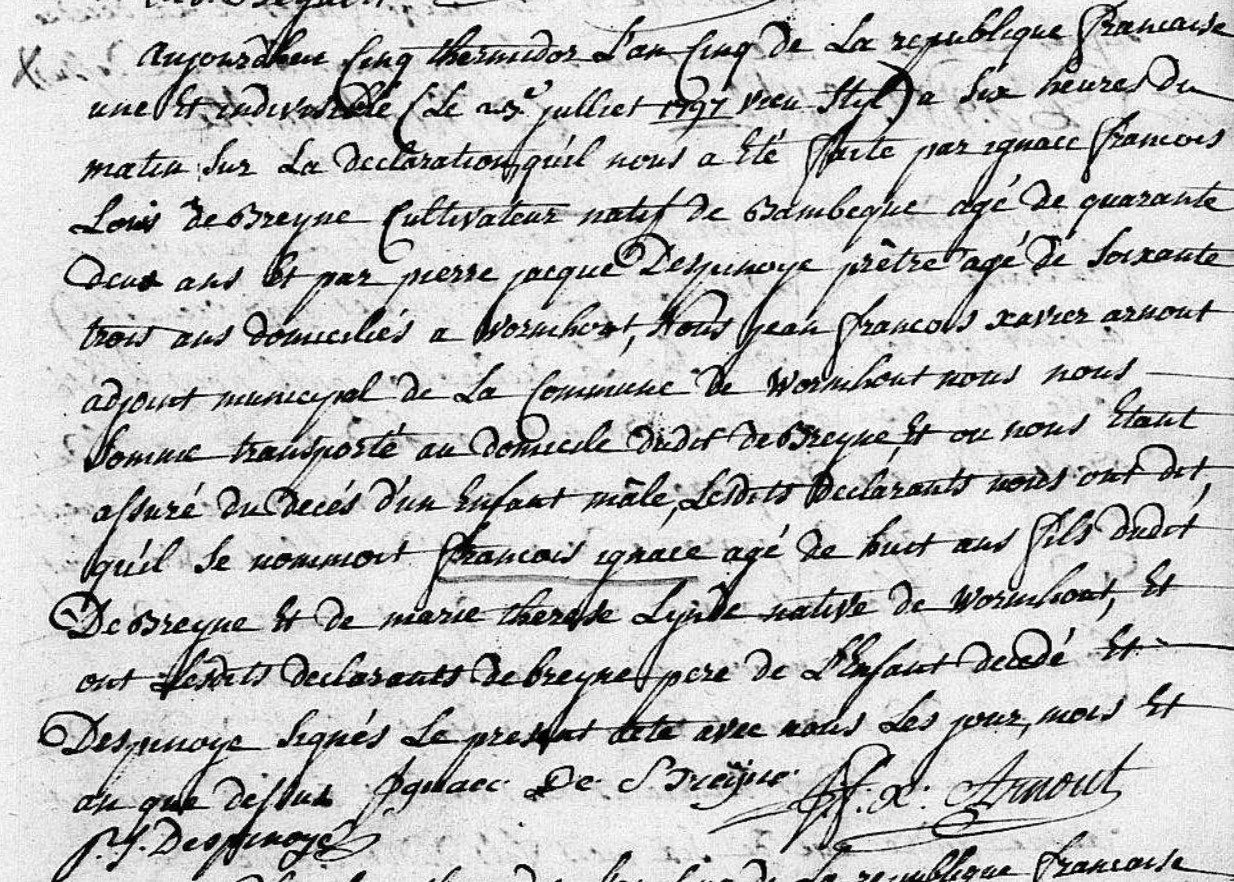 aujourdheu Cinq thermidor L'an Cinq de La republique francaise
une Et indivisible (Le 23e julliet 1797 vieu Stil) a Six heures du
matin Sur La declaration, qu'il nous a Eté faite par ignace francois
Louis de Breyne Cultivateur natif de Bambeque agé de quarante
deux ans Et par pierre jacque Despinoye prêtre agé de Soixante
trois ans domiciliés a Wormhout, Nous jean francois xavier arnout
adjoint municipal de La Commune de Wormhout nous nous
Somme transporté au domicile dudit de Breyne, Et ou nous Etant
assuré du decés d'un Enfant mâle, Lesdits declarants nous ont dit,
qu'il Se nommoit francois ignace agé de huit ans fils dudit
De Breyne Et de marie therese Lynde native de Wormhout, Et
ont Lesdits declarants de breyne pere de L'Enfant decedé Et
Despinoye Signés Le present acte avec nous Les jour, mois Et
an que dessus Ignace De Breÿne J. f. x. Arnout
p. J. Despinoye
La republique francaise